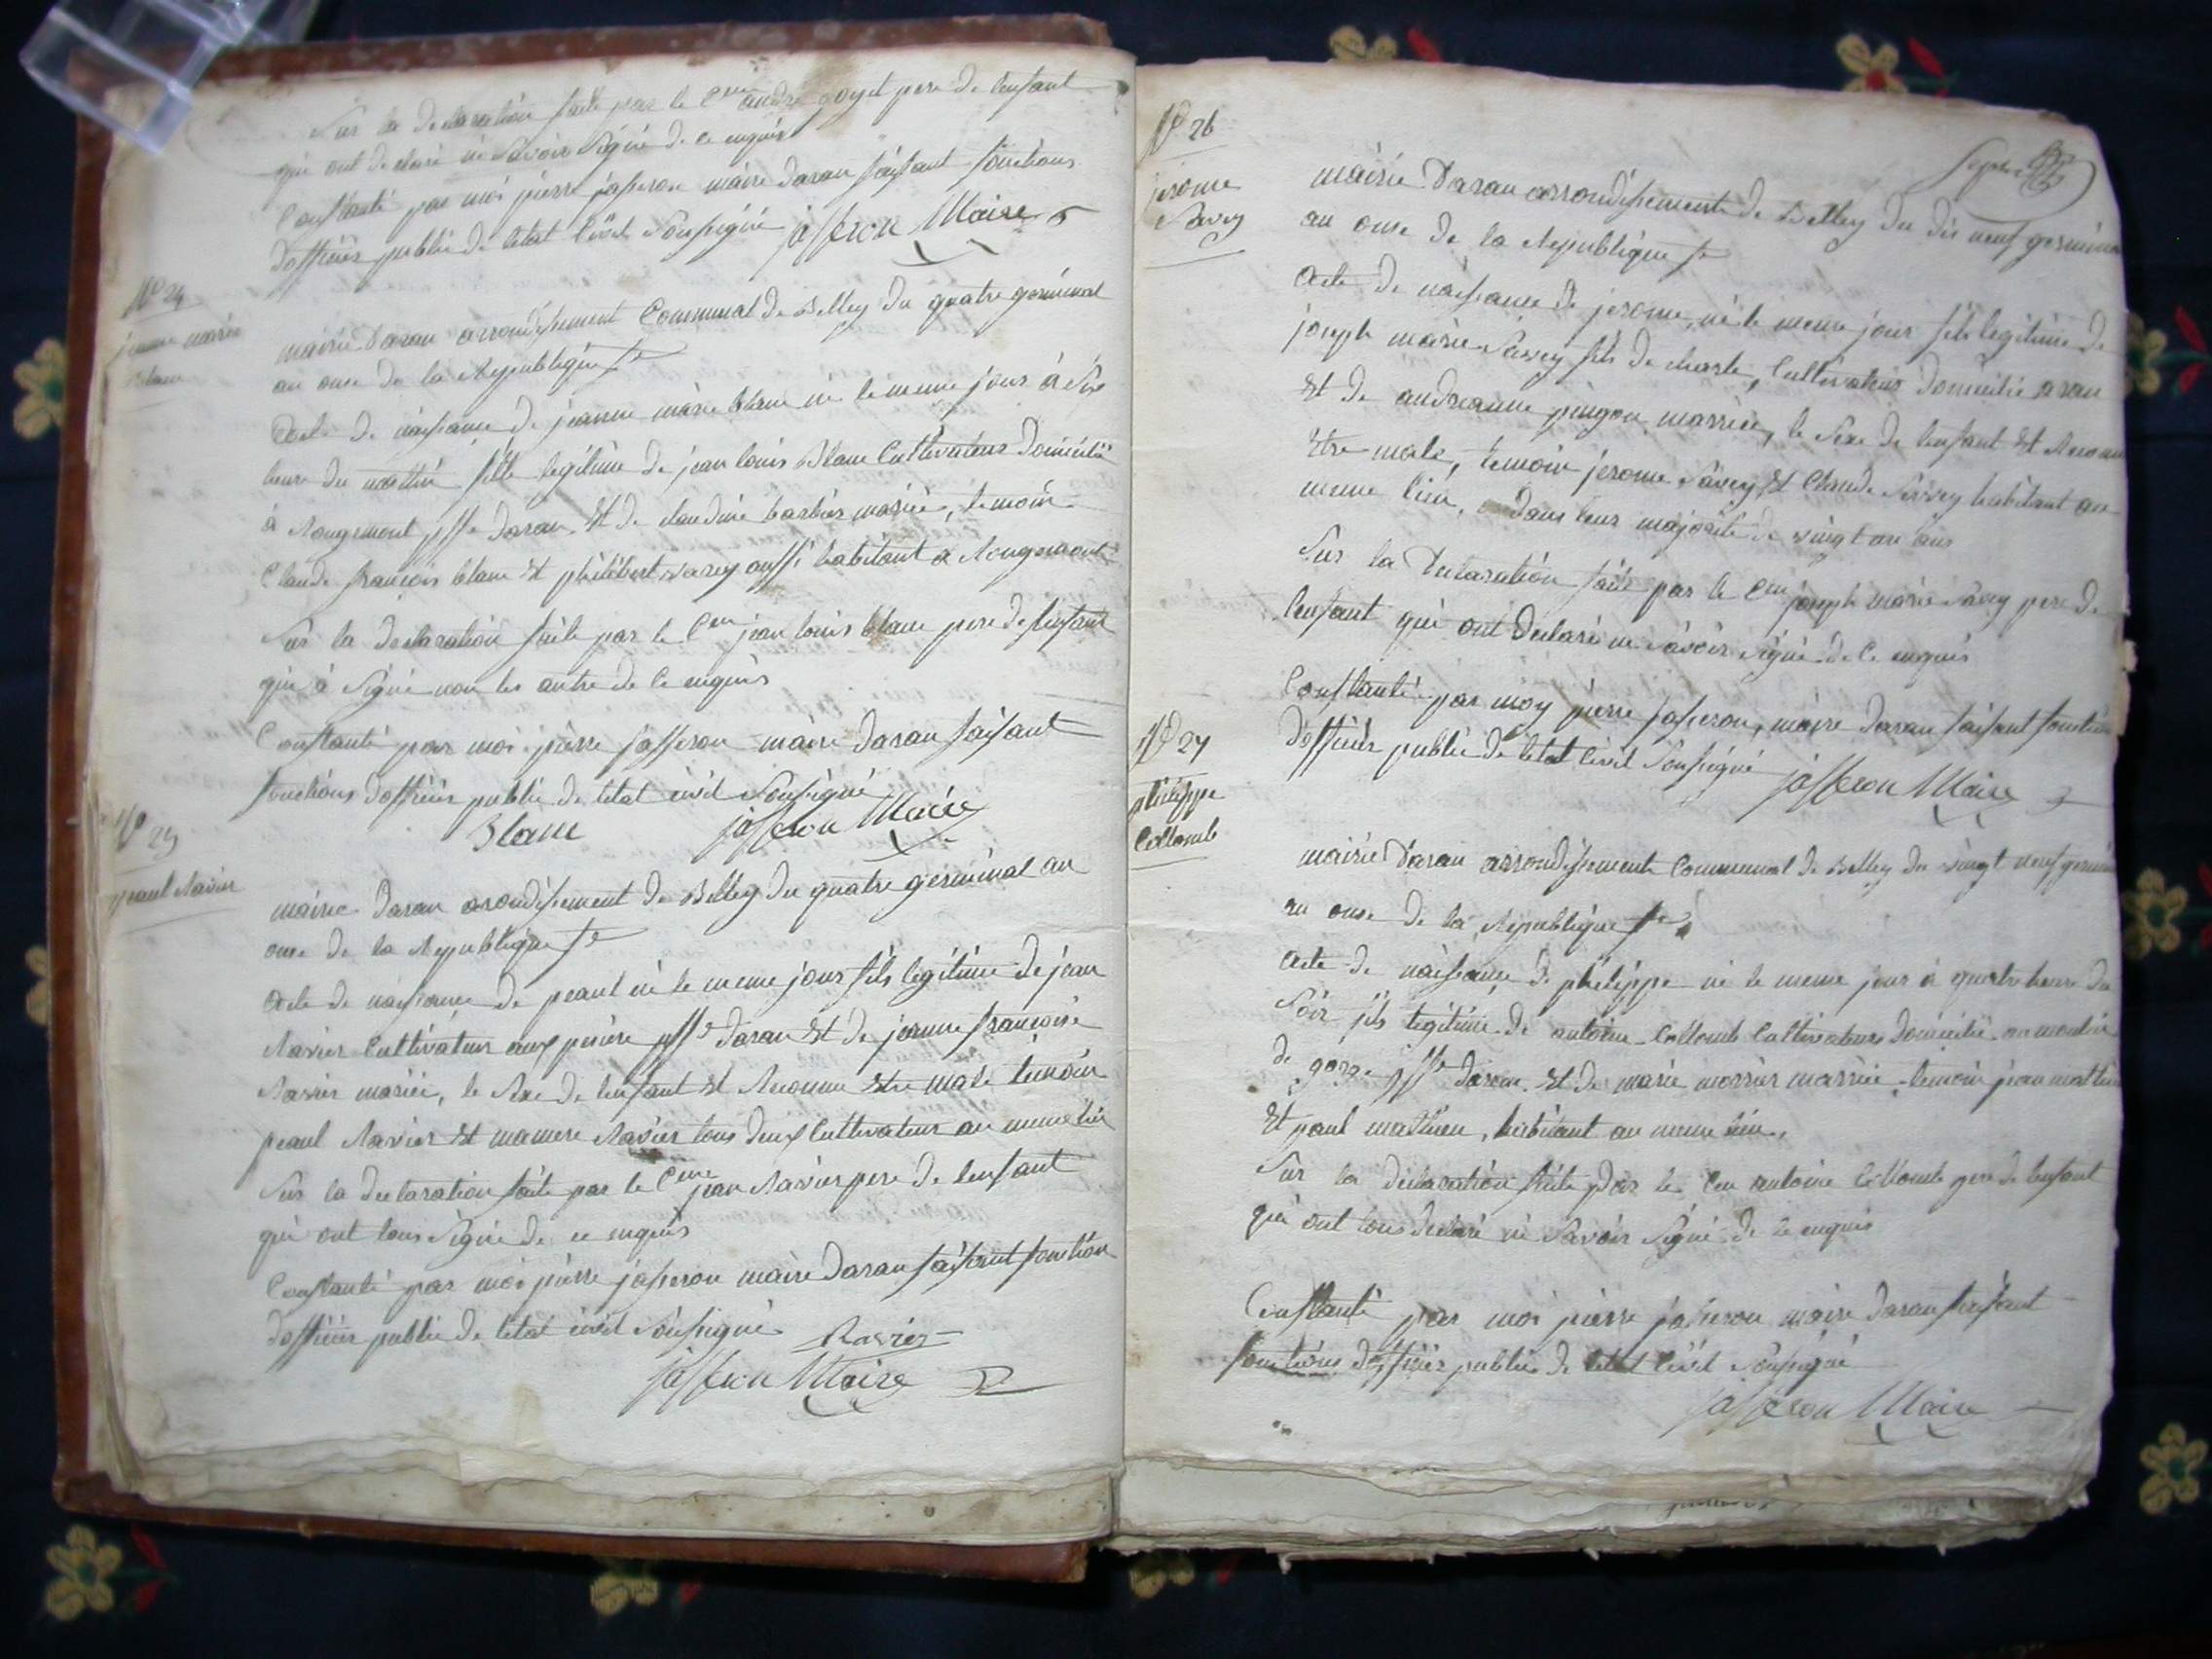 Sur la declaration faite par le Cen andré goyet pere de lenfant
qui ont declaré ne savoir signé de ce enquis
Constanté par moi pierre jasseron maire daran faisant fonctions
dofficier publie de letat civil Soussigné jasseron Maire
No 24
jeanne marie
blanc
mairie daran arrondissement Communal de Belley du quatre germinal
an onse de la Republique fse
acte de naissance de jeanne marie blanc né le meme jour à six
heure du mattin fille legitime de jean louis Blanc Cultivateur domicilié
à Rougemont psse daran Et de claudine barbier mariée, temoin
Claude françois blanc Et philibert savey aussi habitant a Rougemont
Sur la declaration faite par le Cen jean louis blanc pere de lenfant
qui à signé non les autre de ce enquis
Constanté par moi pierre jasseron maire daran faisant
fonctions dofficier publie de letat civil Soussigné
Blanc jasseron Maire
No 25
peaul Ravier
mairie daran arondissement de Belley du quatre germinal an
onse de la Republique fse
acte de naissance de peaul né le meme jour fils legitime de jean
Ravier Cultivateur aux psse daran Et de jeanne françoise
Ravier mariée, le sexe de lenfant Et Reconnu Etre male temoin
peaul Ravier Et mamere Ravier tous deux Cultivateur au meme lieu
Sur la declaration faite par le Cen jean Ravier pere de lenfant
qui ont tous signé de ce enquis
Constanté par moi pierre jasseron maire daran faisant fonction
dofficier publie de letat civil Soussigné Ravier
jasseron Maire
No 26
jerome
Savey
mairie daran arrondissement de Belley du dix neuf germinal
an onse de la Republique fse
acte de naissance de jerome, né le meme jour fils legitime de
joseph marie Savey fils de charle, Cultivateur domicilié aran
Et de andreanne pingon marriée, le sexe de lenfant Et Reconnu
Etre male, temoin jerome Savey Et Claude Savey habitant au
meme lieu, dans leur majorité de vingt un ans
Sur la declaration faite par le Cen joseph marie Savey pere de
lenfant qui ont declaré ne savoir signé de ce enquis
Constanté par moy pierre jasseron, maire daran faisant fonction
dofficier publie de letat Civil Soussigné
jasseron Maire
No 27
philippe
Collomb
mairie daran arrondissement Communal de Belley du vingt neuf germinal
an onse de la Republique fse
acte de naissance de philippe né le meme jour à quatre heure du
soir fils legitime de antoine Collomb Cultivateur domicilié au moulin
de gorge psse daran Et de marie morrier marriée temoin jean mathieu
Et paul mathieu, habitant au meme lieu,
Sur la declaration faite par le Cen antoine Collomb pere de lenfant
qui ont tous declaré ne savoir signé de ce enquis
Constanté par moi pierre jasseron maire daran faisant
fonctions dofficier publie de letat Civil Soussigné
jasseron Maire